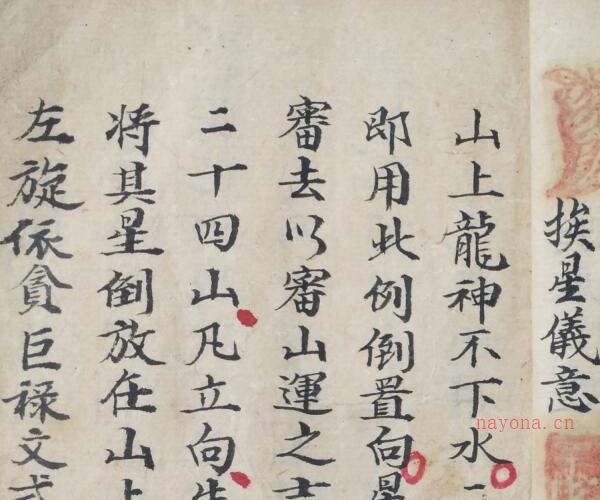 挨星儀意
山上龍神不下水
即用此例倒置向星
審去以審山運之
二十四山凡立向
将其星倒放在山上
左旋依貪巨祿文
nayona.cn